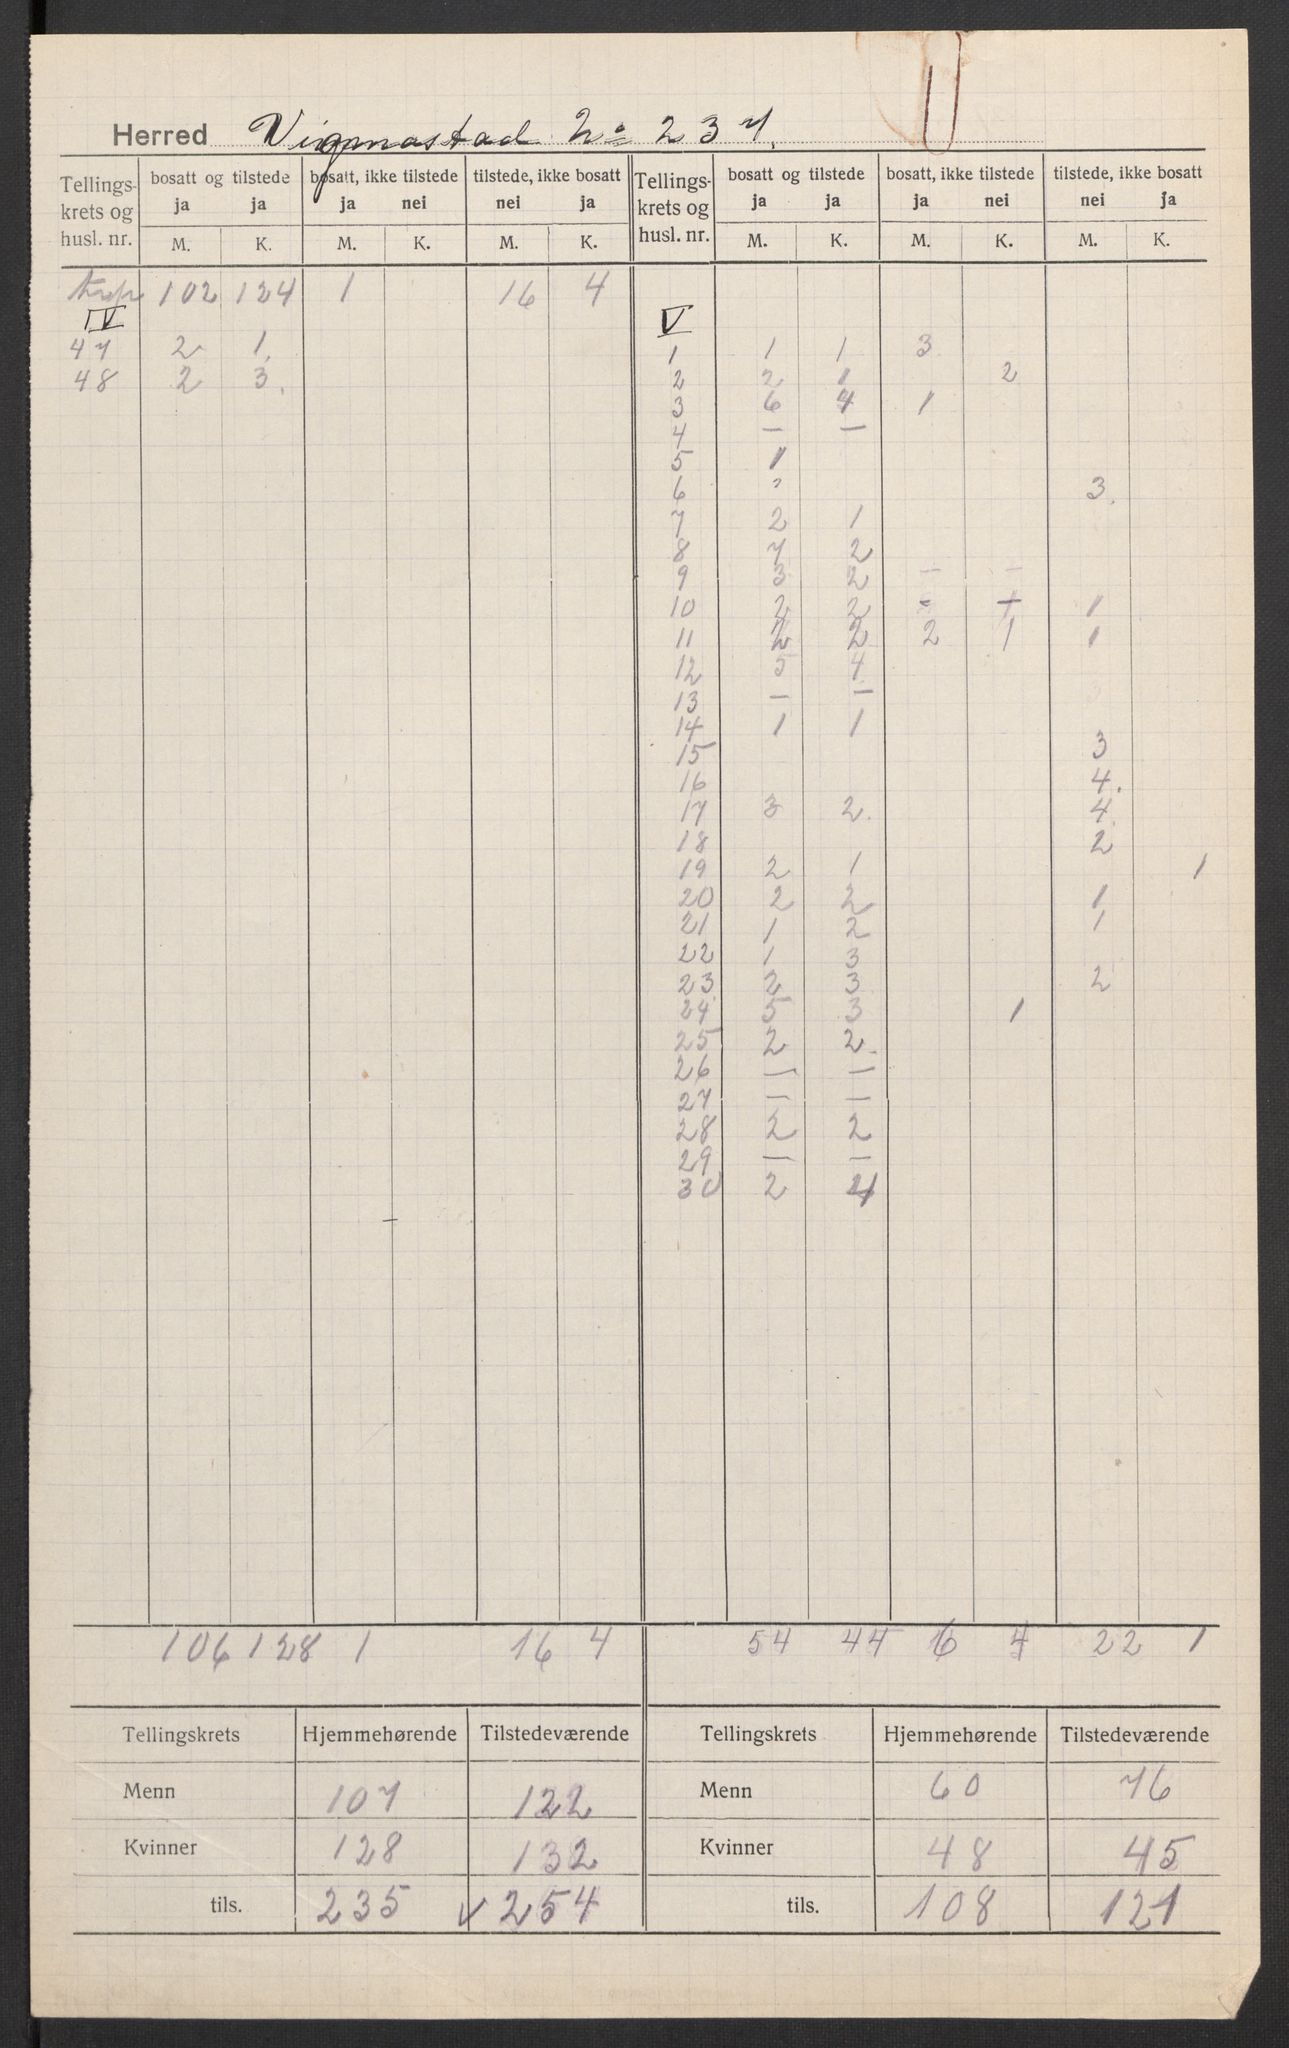 Herred Vigmostad No 237.
Tellings- krets og husl. nr. | bosatt og tilstede ja ja M. K. | bosatt, ikke tilstede ja nei M. K. | tilstede, ikke bosatt nei ja M. K. | Tellings- krets og husl. nr. | bosatt og tilstede ja ja M. K. | bosatt, ikke tilstede ja nei M. K. | tilstede, ikke bosatt nei ja M. K.
102 124 1 16 4
IV
47 2 1
48 2 3
V
1 1 1 3
2 2 1 2
3 6 4 1
4 – –
5 1
6 3
7 2 1
8 7 2
9 3 2 – –
10 2 2 - 1
11 2 2 2 1 1
12 5 4
13 – –
14 1 1
15 3
16 4.
17 3 2. 4
18 2
19 2 1 1
20 2 2 1
21 1 2 1
22 1 3
23 2 3 2
24 5 3 1
25 2 2.
26 – –
27 – –
28 2 2
29 – –
30 2 4
106 128 1 16 4 54 44 6 4 22 1
Tellingskrets Hjemmehørende Tilstedeværende Tellingskrets Hjemmehørende Tilstedeværende
Menn 107 122 Menn 60 76
Kvinner 128 132 Kvinner 48 45
tils. 235 v 254 tils. 108 121